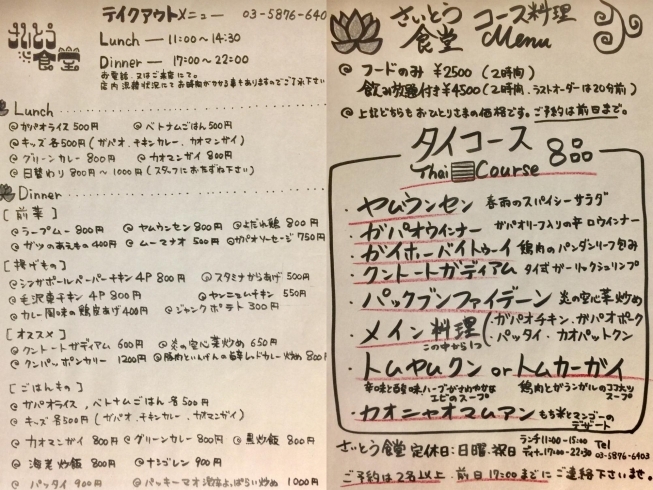 テイクアウトメニュー 03-5876-640
さいとう食堂
Lunch — 11:00〜14:30
Dinner — 17:00〜22:00
お電話、又はご来店にて。
店内混雑状況にてお時間がかかる事もありますのでご了承下さい
Lunch
@ ガパオライス 500円 @ ベトナムごはん 500円
@ キッズ 各500円 (ガパオ、チキンカレー、カオマンガイ)
@ グリーンカレー 800円 @ カオマンガイ 800円
@ 日替わり 800円〜1000円 (スタッフにおたずね下さい)
Dinner
[前菜]
@ ラープムー 800円 @ ヤムウンセン 800円 @ よだれ鶏 800円
@ ガツのあえもの 400円 @ ムーマナオ 500円 @ ガパオソーセージ 750円
[揚げもの]
@ シンガポールペーパーチキン 4P 800円 @ スタミナからあげ 500円
@ 毛沢東チキン 4P 800円 @ ヤンニョムチキン 550円
@ カレー風味の鶏皮あげ 400円 @ ジャンクポテト 300円
[オススメ]
@ クントートガディアム 600円 @ 炎の空心菜炒め 650円
@ クンパッポンカリー 1200円 @ 豚肉といんげんの旨辛レッドカレー炒め 800
[ごはんもの]
@ ガパオライス、ベトナムごはん 各500円
@ キッズ 各500円 (ガパオ、チキンカレー、カオマンガイ)
@ カオマンガイ 800円 @ グリーンカレー 800円 @ 黒炒飯 800円
@ 海老炒飯 800円 @ ナシゴレン 900円
@ パッタイ 900円 @ パッキーマオ 1000円
さいとう食堂 コース料理 Menu
@ フードのみ ¥2500 (2時間)
飲み放題付き ¥4500 (2時間、ラストオーダーは20分前)
@ 上記どちらもおひとりさまの価格です。ご予約は前日まで。
タイコース 8品
Thai Course
・ヤムウンセン 春雨のスパイシーサラダ
・ガパオウィンナー ガパオリーフ入りの辛口ウインナー
・ガイホーバイトゥーイ 鶏肉のパンダンリーフ包み
・クントートガディアム タイ式ガーリックシュリンプ
・パックブンファイデーン 炎の空心菜炒め
・メイン料理 この中から1つ (・ガパオチキン・ガパオポーク
・パッタイ・カオパットクン
・トムヤムクン or トムカーガイ
辛味と酸味、ハーブがさわやかなエビのスープ 鶏肉とガランガルのココナッツスープ
・カオニャオマムアン もち米とマンゴーのデザート
さいとう食堂 定休日:日曜、祝日 ランチ11:00-15:00 ディナー17:00-22:30 Tel 03-5876-6403
ご予約は2名以上、前日17:00までにご連絡下さいませ。